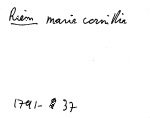 Rièm marie cornillie
1791- 37